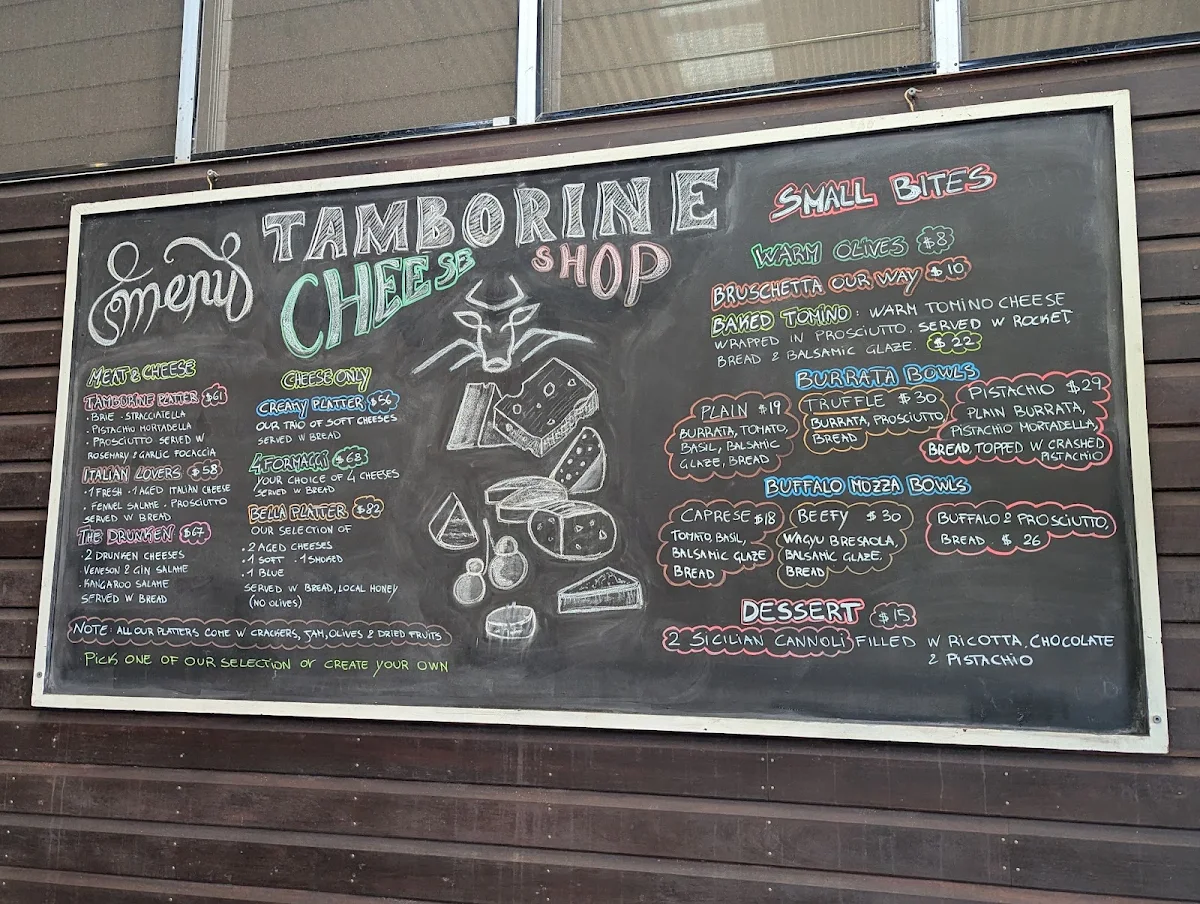 Menu
TAMBORINE
CHEESE SHOP
MEAT & CHEESE
TAMBORINE PLATTER $61
· BRIE · STRACCIATELLA
· PISTACHIO MORTADELLA
· PROSCIUTTO SERVED W
ROSEMARY & GARLIC FOCACCIA
ITALIAN LOVERS $58
· 1 FRESH · 1 AGED ITALIAN CHEESE
· FENNEL SALAME · PROSCIUTTO
SERVED W BREAD
THE DRUNKEN $67
· 2 DRUNKEN CHEESES
VENESON & GIN SALAME
· KANGAROO SALAME
SERVED W BREAD
CHEESE ONLY
CREAMY PLATTER $56
OUR TRIO OF SOFT CHEESES
SERVED W BREAD
4 FORMAGGI $68
YOUR CHOICE OF 4 CHEESES
SERVED W BREAD
BELLA PLATTER $82
OUR SELECTION OF
· 2 AGED CHEESES
· 1 SOFT · 1 SMOKED
· 1 BLUE
SERVED W BREAD, LOCAL HONEY
(NO OLIVES)
NOTE: ALL OUR PLATTERS COME W CRACKERS, JAM, OLIVES & DRIED FRUITS
PICK ONE OF OUR SELECTION OR CREATE YOUR OWN
SMALL BITES
WARM OLIVES $8
BRUSCHETTA OUR WAY $10
BAKED TOMINO: WARM TOMINO CHEESE
WRAPPED IN PROSCIUTTO. SERVED W ROCKET,
BREAD & BALSAMIC GLAZE. $22
BURRATA BOWLS
PLAIN $19
BURRATA, TOMATO,
BASIL, BALSAMIC
GLAZE, BREAD
TRUFFLE $30
BURRATA, PROSCIUTTO
BREAD
PISTACHIO $29
PLAIN BURRATA,
PISTACHIO MORTADELLA,
BREAD, TOPPED W CRASHED
PISTACHIO
BUFFALO MOZZA BOWLS
CAPRESE $18
TOMATO, BASIL,
BALSAMIC GLAZE
BREAD
BEEFY $30
WAGYU BRESAOLA,
BALSAMIC GLAZE,
BREAD
BUFFALO & PROSCIUTTO,
BREAD. $26
DESSERT $15
2 SICILIAN CANNOLI FILLED W RICOTTA, CHOCOLATE
& PISTACHIO